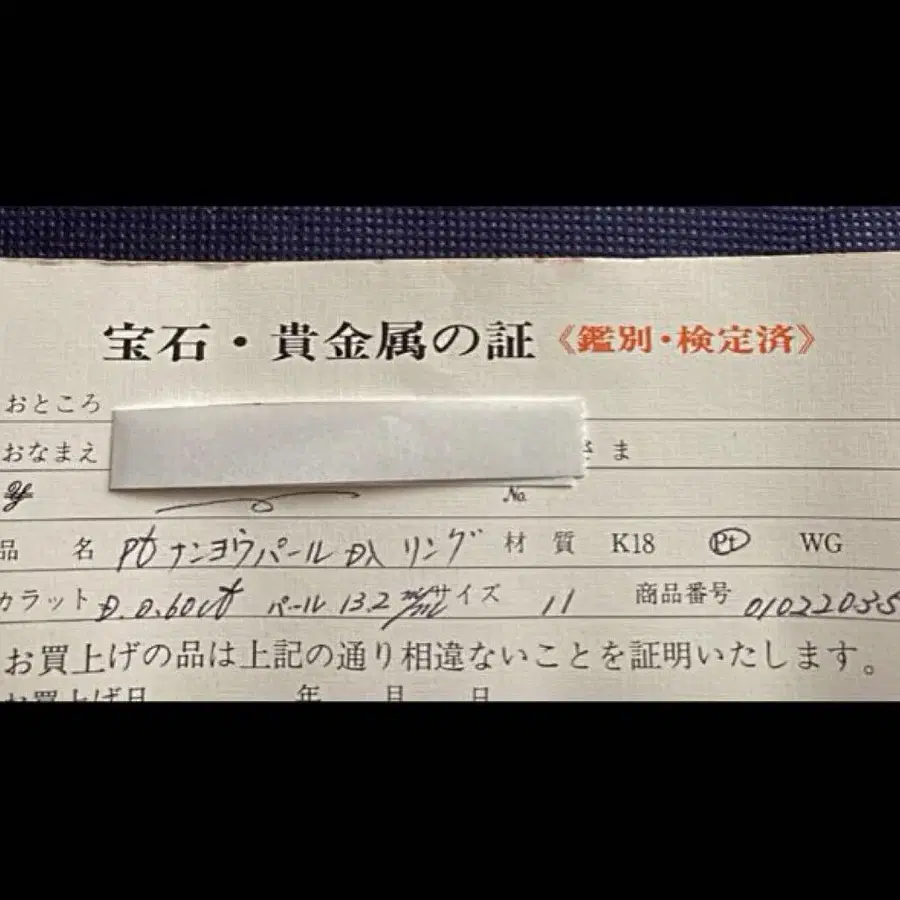 宝石・貴金属の証《鑑別・検定済》
おところ
おなまえ さま
No.
品 名 Ptナンヨウパール D入 リング 材 質 K18 Pt WG
カラット D.0.60ct パール 13.2 m/m サイズ 11 商品番号 01022035
お買上げの品は上記の通り相違ないことを証明いたします。
お買上げ日 年 月 日